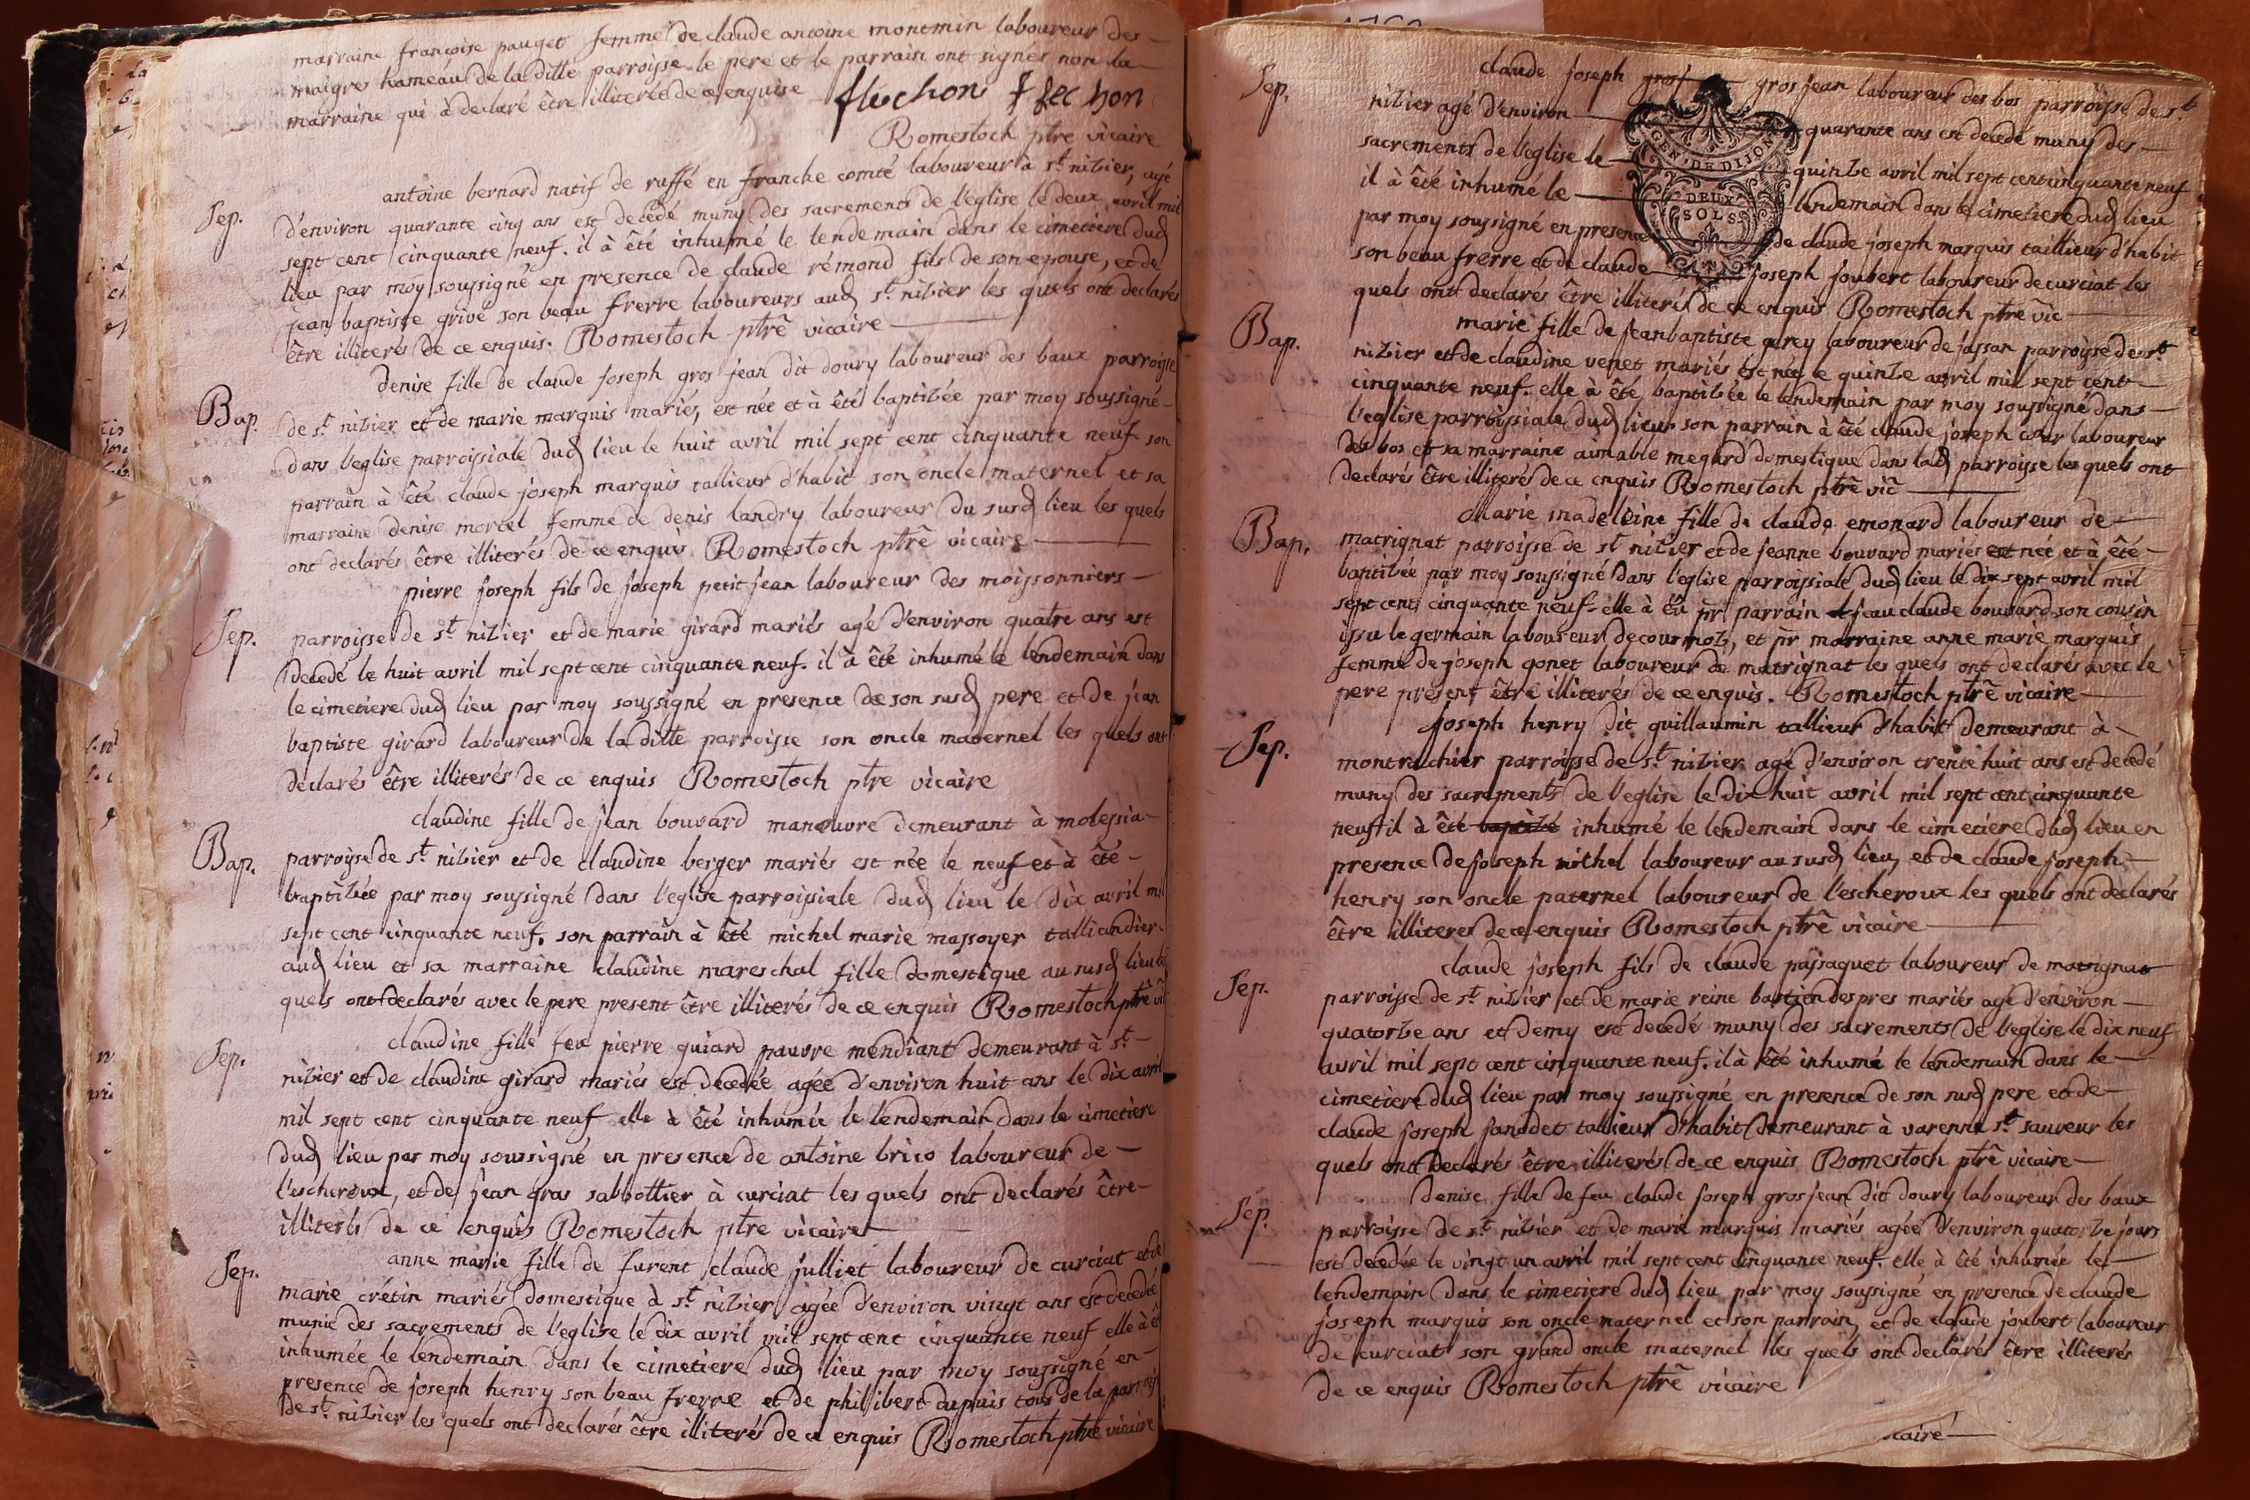 marraine françoise pauget femme de claude antoine montmin laboureur des
maigres hameau de la ditte parroisse le pere et le parrain ont signés non la
marraine qui à declaré être illiterée de ce enquise
flechon flechon
Romestoch ptre vicaire
Sep.
antoine bernard natif de ruffé en franche comté laboureur à st nizier, agé
d'environ quarante cinq ans est decedé muny des sacrements de l'eglise le deux avril mil
sept cent cinquante neuf. il à êté inhumé le lendemain dans le cimetiere dud
lieu par moy soussigné en presence de claude rémond fils de son epouse, et de
jean baptiste grivé son beau frerre laboureurs aud st nizier les quels ont declarés
être illiterés de ce enquis. Romestoch ptrē vicaire
Bap.
denise fille de claude joseph gros jean dit doury laboureur des baux parroisse
de st nizier et de marie marquis mariés, est née et à êté baptizée par moy soussigné
dans l'eglise parroissiale dud lieu le huit avril mil sept cent cinquante neuf son
parrain à êté claude joseph marquis tallieur d'habit son oncle maternel et sa
marraine denise mortel femme de denis landry laboureur du susd lieu les quels
ont declarés être illiterés de ce enquis Romestoch ptrē vicaire
Sep.
pierre joseph fils de joseph petit jean laboureur des moissonniers
parroisse de st nizier et de marie girard mariés agé d'environ quatre ans est
decedé le huit avril mil sept cent cinquante neuf. il à êté inhumé le lendemain dans
le cimetiere dud lieu par moy soussigné en presence de son susd pere et de jean
baptiste girard laboureur de la ditte parroisse son oncle maternel les quels ont
declarés être illiterés de ce enquis Romestoch ptre vicaire
Bap.
claudine fille de jean bouvard manouvre demeurant à molessia
parroisse de st nizier et de claudine berger mariés est née le neuf et à êté
baptizée par moy soussigné dans l'eglise parroissiale dud lieu le dix avril mil
sept cent cinquante neuf. son parrain à êté michel marie massoyer talliandier
aud lieu et sa marraine claudine mareschal fille domestique au susd lieu les
quels ont declarés avec le pere present être illiterés de ce enquis Romestoch ptrē
Sep.
claudine fille feu pierre guiard pauvre mendiant demeurant à st
nizier et de claudine girard mariés est decedée agée d'environ huit ans le dix avril
mil sept cent cinquante neuf elle à êté inhumée le lendemain dans le cimetiere
dud lieu par moy soussigné en presence de antoine brico laboureur de
l'escheroux, et de jean gras sabbottier à curciat les quels ont declarés être
illiterés de ce enquis Romestoch ptre vicaire
Sep.
anne marie fille de furent claude julliet laboureur de curciat et de
marie crétin mariés domestique à st nizier agée d'environ vingt ans est decedée
munie des sacrements de l'eglise le dix avril mil sept cent cinquante neuf elle à êté
inhumée le lendemain dans le cimetiere dud lieu par moy soussigné en
presence de joseph henry son beau frerre et de philibert dupuis tous de la parroisse
de st nizier les quels ont declarés être illiterés de ce enquis Romestoch ptre vicaire
Sep.
claude joseph gros gros jean laboureur des bos parroisse de st
nizier agé d'environ quarante ans est decedé muny des
sacrements de l'eglise le quinze avril mil sept cent cinquante neuf
il à êté inhumé le lendemain dans le cimetiere dud lieu
par moy soussigné en presence de claude joseph marquis taillieur d'habit
son beau frerre et de claude joseph joubert laboureur de curciat les
quels ont declarés être illiterés de ce enquis Romestoch ptrē vic
GEN. DE DIJON
DEUX
SOLS
Bap.
marie fille de jean baptiste perey laboureur de jassan parroisse de st
nizier et de claudine venet mariés est née le quinze avril mil sept cent
cinquante neuf. elle à êté baptizée le lendemain par moy soussigné dans
l'eglise parroissiale dud lieu. son parrain à êté claude joseph cour laboureur
des bos et sa marraine aimable megard domestique dans lad parroisse les quels ont
declarés être illiterés de ce enquis Romestoch ptrē vic
Bap.
marie madeleine fille de claude emonard laboureur de
matrignat parroisse de st nizier et de jeanne bouvard mariés est née et à êté
baptizée par moy soussigné dans l'eglise parroissiale dud lieu le dix sept avril mil
sept cent cinquante neuf. elle à eu pr parrain jean claude bouvard son cousin
issu le germain laboureur de courmoz, et pr marraine anne marie marquis
femme de joseph gonet laboureur de matrignat les quels ont declarés avec le
pere present être illiterés de ce enquis. Romestoch ptrē vicaire
Sep.
joseph henry dit guillaumin tallieur d'habit demeurant à
montrachier parroisse de st nizier agé d'environ trente huit ans est decedé
muny des sacrements de l'eglise le dix huit avril mil sept cent cinquante
neuf il à êté baptizé inhumé le lendemain dans le cimetiere dud lieu en
presence de joseph michel laboureur au susd lieu, et de claude joseph
henry son oncle paternel laboureur de l'escheroux les quels ont declarés
être illiteres de ce enquis Romestoch ptrē vicaire
Sep.
claude joseph fils de claude paisaquet laboureur de matrignat
parroisse de st nizier et de marie reine bastien despres mariés agé d'environ
quatorze ans et demy est decedé muny des sacrements de l'eglise le dix neuf
avril mil sept cent cinquante neuf. il à êté inhumé le lendemain dans le
cimetiere dud lieu par moy soussigné en presence de son susd pere et de
claude joseph janodet tallieur d'habit demeurant à varenne st sauveur les
quels ont declarés être illiterés de ce enquis Romestoch ptrē vicaire
Sep.
denise fille de feu claude joseph gros jean dit doury laboureur des baux
parroisse de st nizier et de marie marquis mariés agée d'environ quatorze jours
est decedée le vingt un avril mil sept cent cinquante neuf. elle à êté inhumée le
lendemain dans le cimetiere dud lieu par moy soussigné en presence de claude
joseph marquis son oncle maternel et son parrain, et de claude joubert laboureur
de curciat son grand oncle maternel les quels ont declarés être illiterés
de ce enquis Romestoch ptrē vicaire